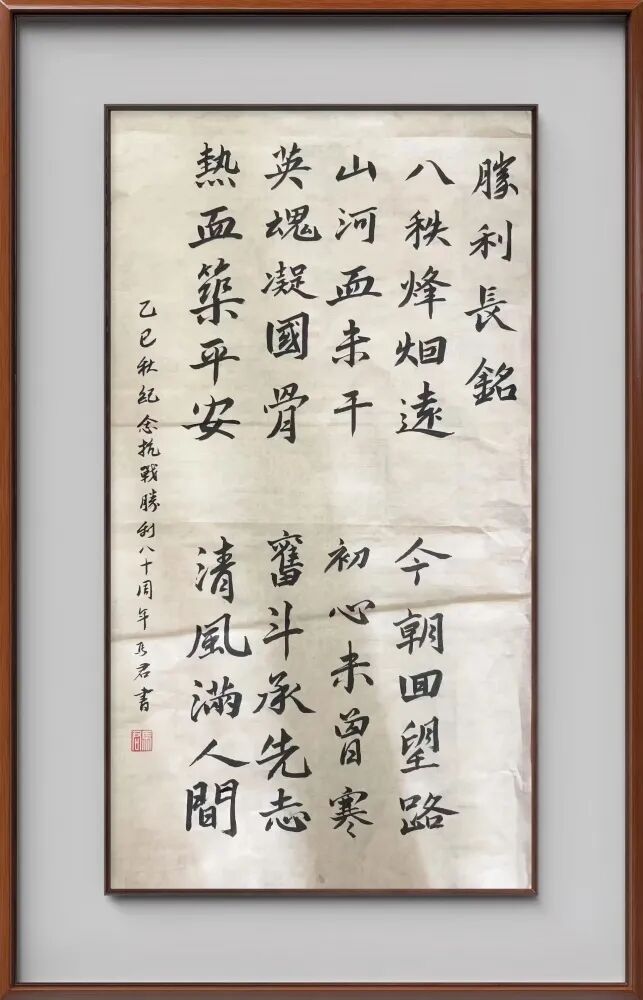 勝利長銘
八秩烽烟遠
山河血未干
英魂凝國骨
熱血築平安
今朝回望路
初心未曾寒
奮斗承先志
清風滿人間
乙巳秋紀念抗戰勝利八十周年 君書